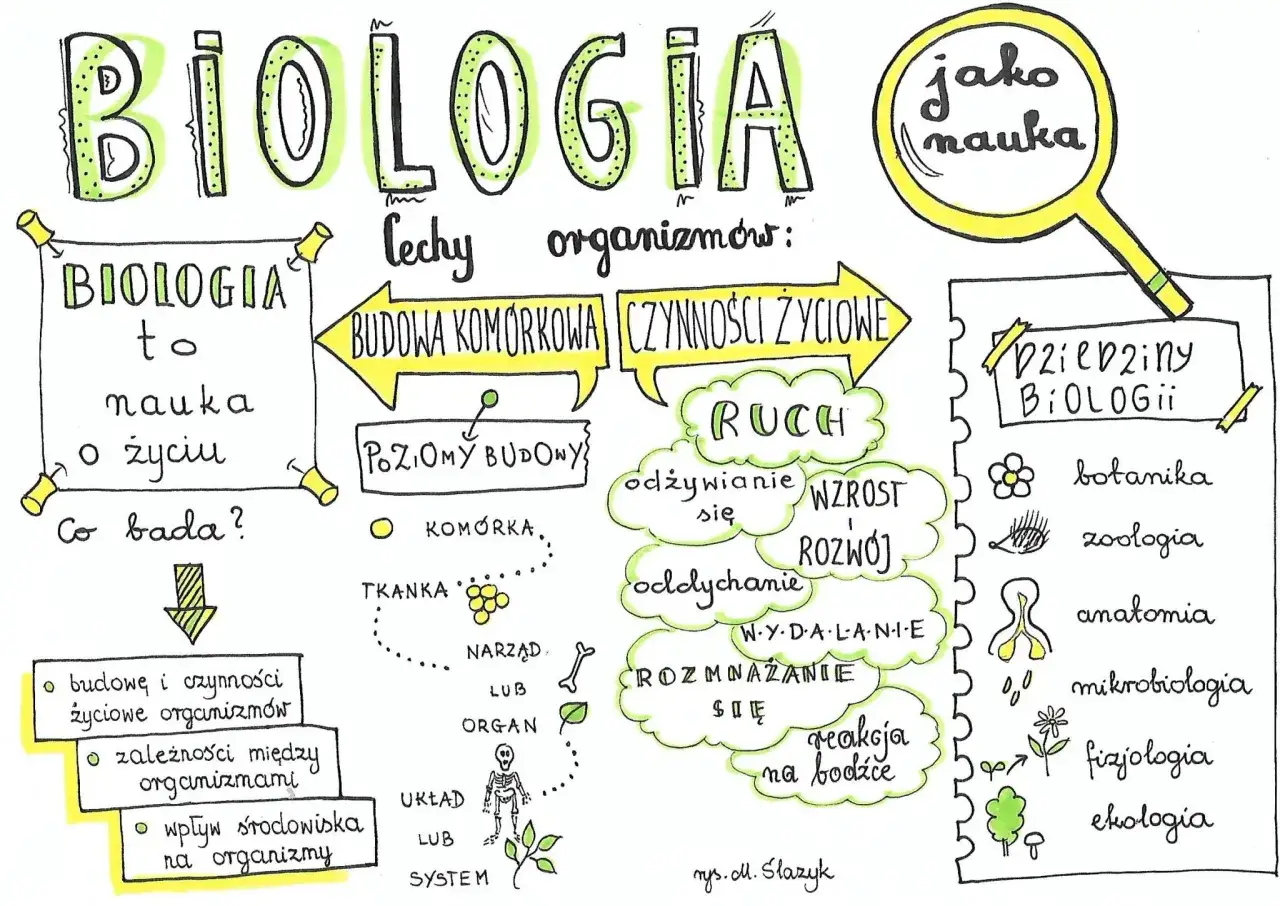 BIOLOGIA
jako
nauka
BIOLOGIA
to
nauka
o życiu
Co bada?
budowę i czynności
życiowe organizmów
zależności między
organizmami
wpływ środowiska
na organizmy
Cechy organizmów:
BUDOWA KOMÓRKOWA
POZIOMY BUDOWY
KOMÓRKA
TKANKA
NARZĄD
LUB
ORGAN
UKŁAD
LUB
SYSTEM
CZYNNOŚCI ŻYCIOWE
RUCH
odżywianie
się
WZROST
i
ROZWÓJ
oddychanie
W•Y•D•A•L•A•N•I•E
ROZMNAŻANIE
SIĘ
reakcja
na bodźce
rys. M. Ślazyk
DZIEDZINY
BiOLOGii
botanika
zoologia
anatomia
mikrobiologia
fizjologia
ekologia